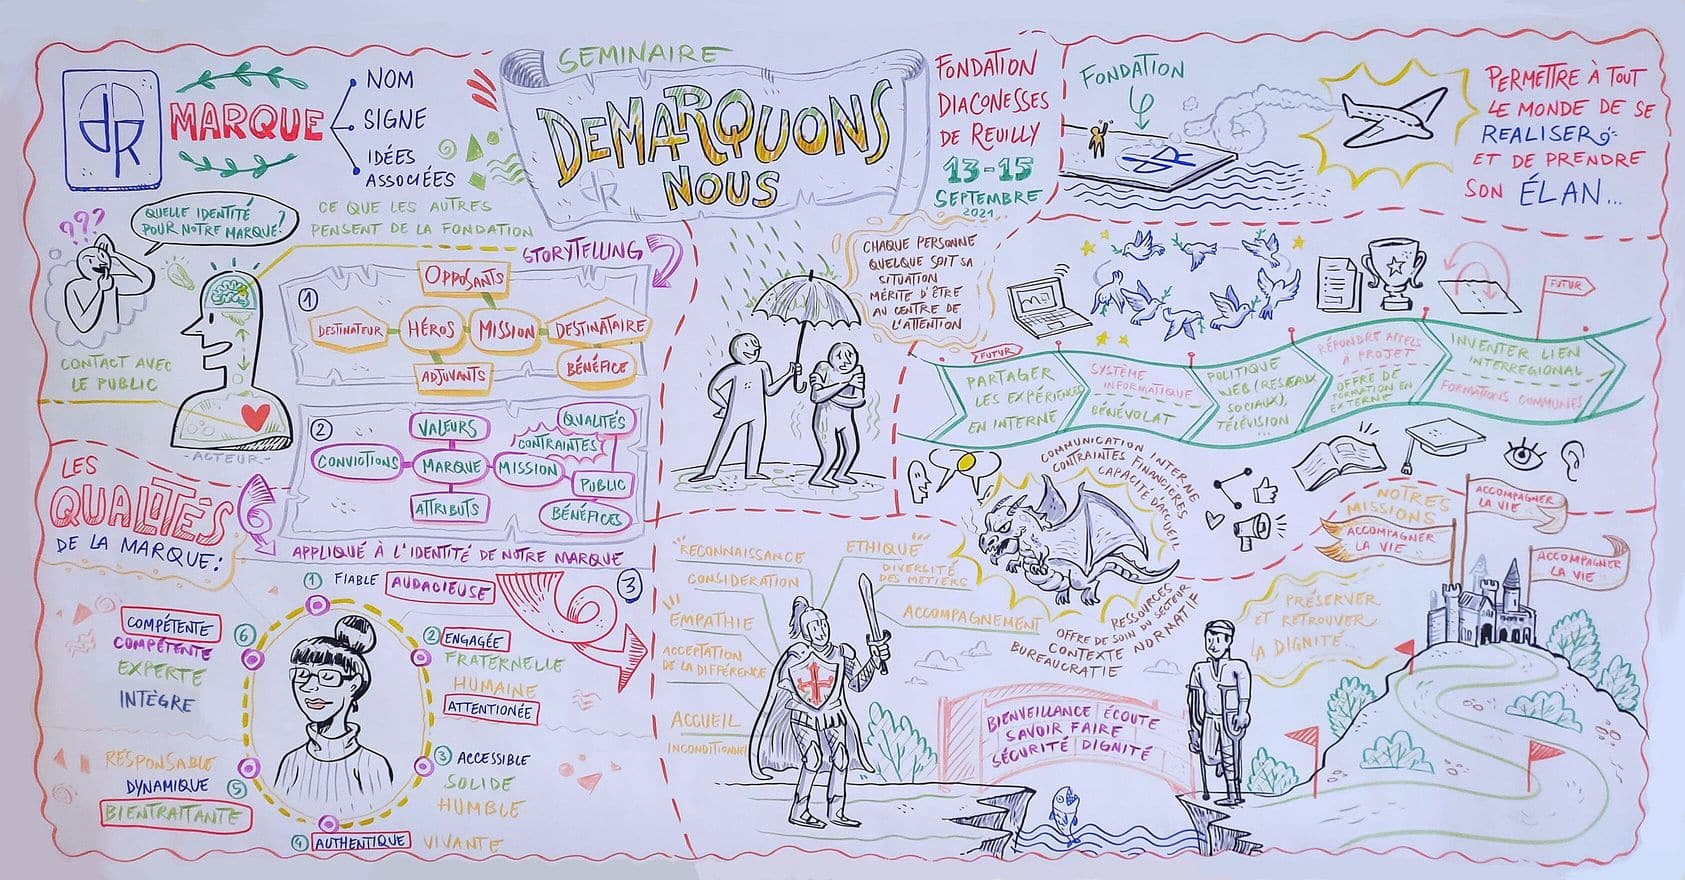 SEMINAIRE
DEMARQUONS
NOUS
DR
DR
MARQUE
NOM
SIGNE
IDÉES
ASSOCIÉES
FONDATION
DIACONESSES
DE REUILLY
13-15
SEPTEMBRE
2021
FONDATION
PERMETTRE À TOUT
LE MONDE DE SE
REALISER
ET DE PRENDRE
SON ÉLAN...
???
QUELLE IDENTITÉ
POUR NOTRE MARQUE?
CE QUE LES AUTRES
PENSENT DE LA FONDATION
CONTACT AVEC
LE PUBLIC
-ACTEUR-
STORYTELLING
1
OPPOSANTS
DESTINATEUR
HÉROS
MISSION
DESTINATAIRE
ADJUVANTS
BÉNÉFICE
2
VALEURS
QUALITÉS
CONTRAINTES
CONVICTIONS
MARQUE
MISSION
PUBLIC
ATTRIBUTS
BÉNÉFICES
APPLIQUÉ À L'IDENTITÉ DE NOTRE MARQUE
3
LES
QUALITÉS
DE LA MARQUE:
1 FIABLE AUDACIEUSE
2 ENGAGÉE
FRATERNELLE
HUMAINE
ATTENTIONÉE
3 ACCESSIBLE
SOLIDE
HUMBLE
4 AUTHENTIQUE VIVANTE
RESPONSABLE
DYNAMIQUE 5
BIENTRAITANTE
6
COMPÉTENTE
COMPÉTENTE
EXPERTE
INTÈGRE
CHAQUE PERSONNE
QUELQUE SOIT SA
SITUATION
MÉRITE D'ÊTRE
AU CENTRE DE
L'ATTENTION
FUTUR
PARTAGER
LES EXPÉRIENCES
EN INTERNE
SYSTÈME
INFORMATIQUE
BÉNÉVOLAT
POLITIQUE
WEB (RESEAUX
SOCIAUX),
TÉLÉVISION
...
RÉPONDRE APPELS
À PROJET
OFFRE DE
FORMATION EN
EXTERNE
INVENTER LIEN
INTERREGIONAL
FORMATIONS COMMUNES
FUTUR
COMMUNICATION INTERNE
CONTRAINTES FINANCIÈRES
CAPACITÉ D'ACCUEIL
RESSOURCES
OFFRE DE SOIN DU SECTEUR
CONTEXTE NORMATIF
BUREAUCRATIE
RECONNAISSANCE
CONSIDERATION
EMPATHIE
ACCEPTATION
DE LA DIFFÉRENCE
ACCUEIL
INCONDITIONNEL
ETHIQUE
DIVERSITÉ
DES METIERS
ACCOMPAGNEMENT
BIENVEILLANCE ÉCOUTE
SAVOIR FAIRE
SÉCURITÉ DIGNITÉ
NOTRES
MISSIONS
ACCOMPAGNER
LA VIE
ACCOMPAGNER
LA VIE
ACCOMPAGNER
LA VIE
PRÉSERVER
ET RETROUVER
LA DIGNITÉ...